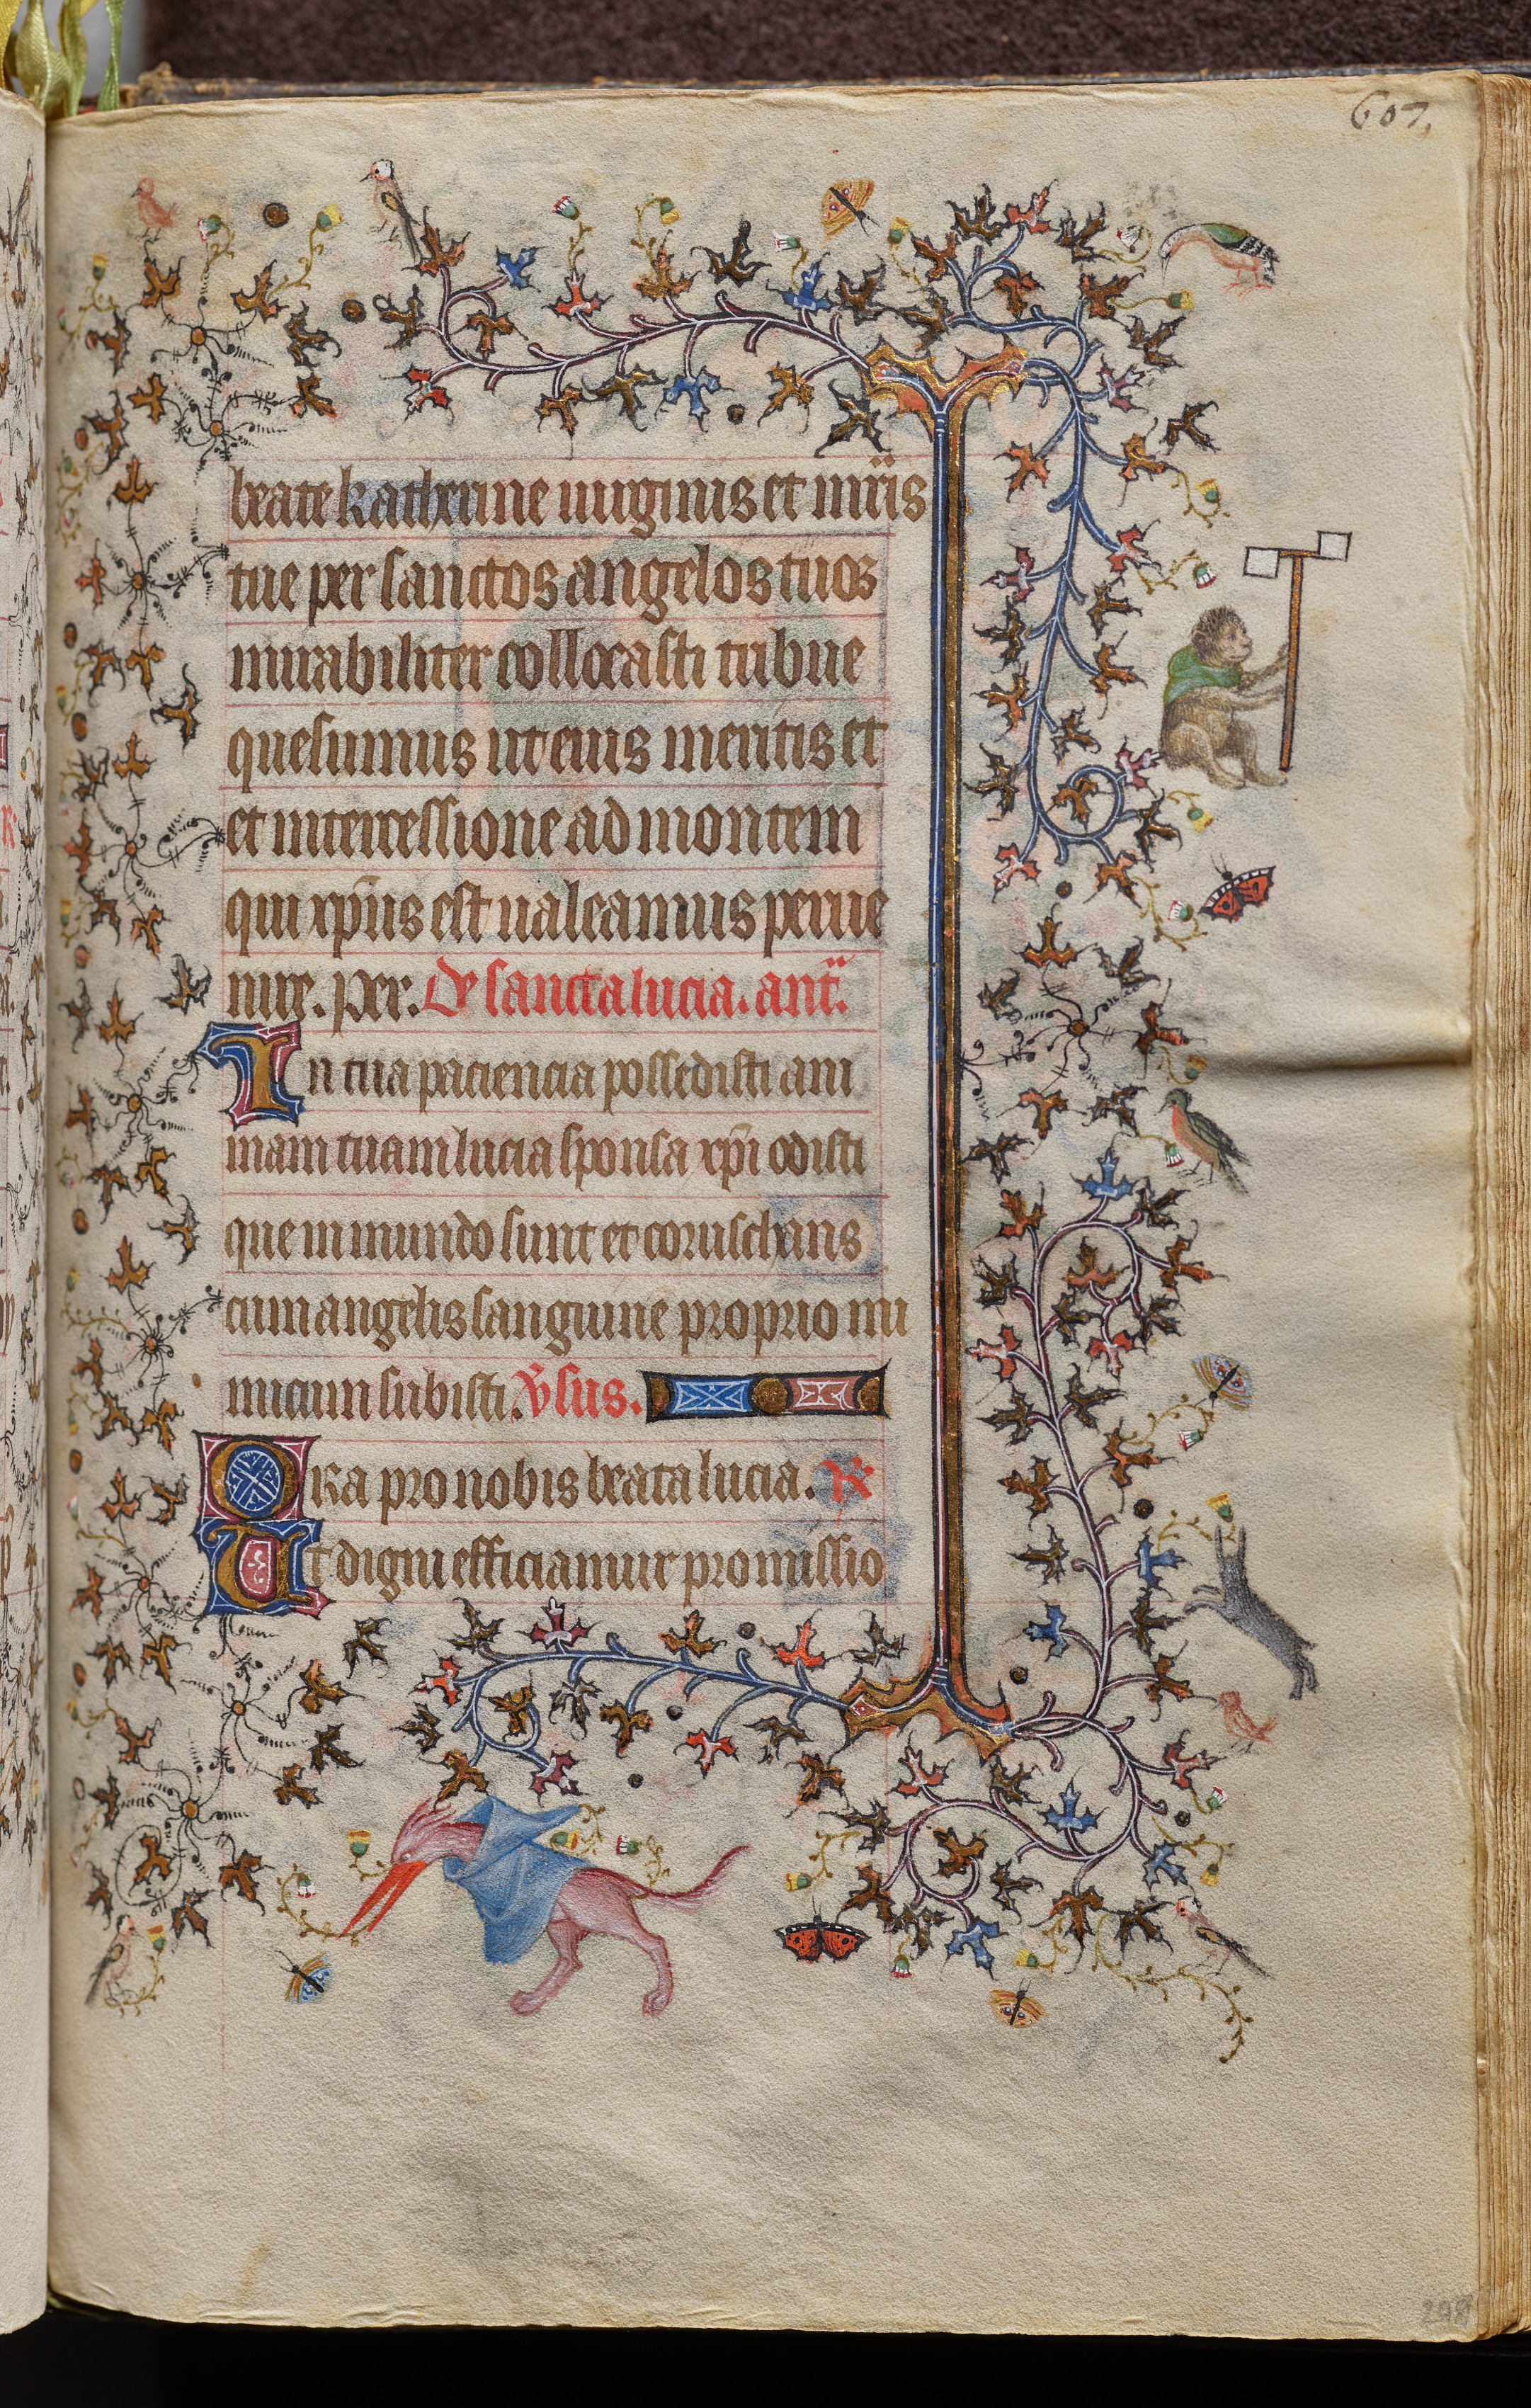 607,
beate katherine uirginis et mr̃is
tue per sanctos angelos tuos
mirabiliter collocasti tribue
quesumus ut eius meritis et
et intercessione ad montem
qui xp̃us est ualeamus perue
nire. per. De sancta lucia. ant̃.
In tua paciencia possedisti ani
mam tuam lucia sponsa xp̃i odisti
que in mundo sunt et coruschans
cum angelis sanguine proprio ini
micum subisti. v̾sus.
Ora pro nobis beata lucia. R
Ut digni efficiamur promissio
298